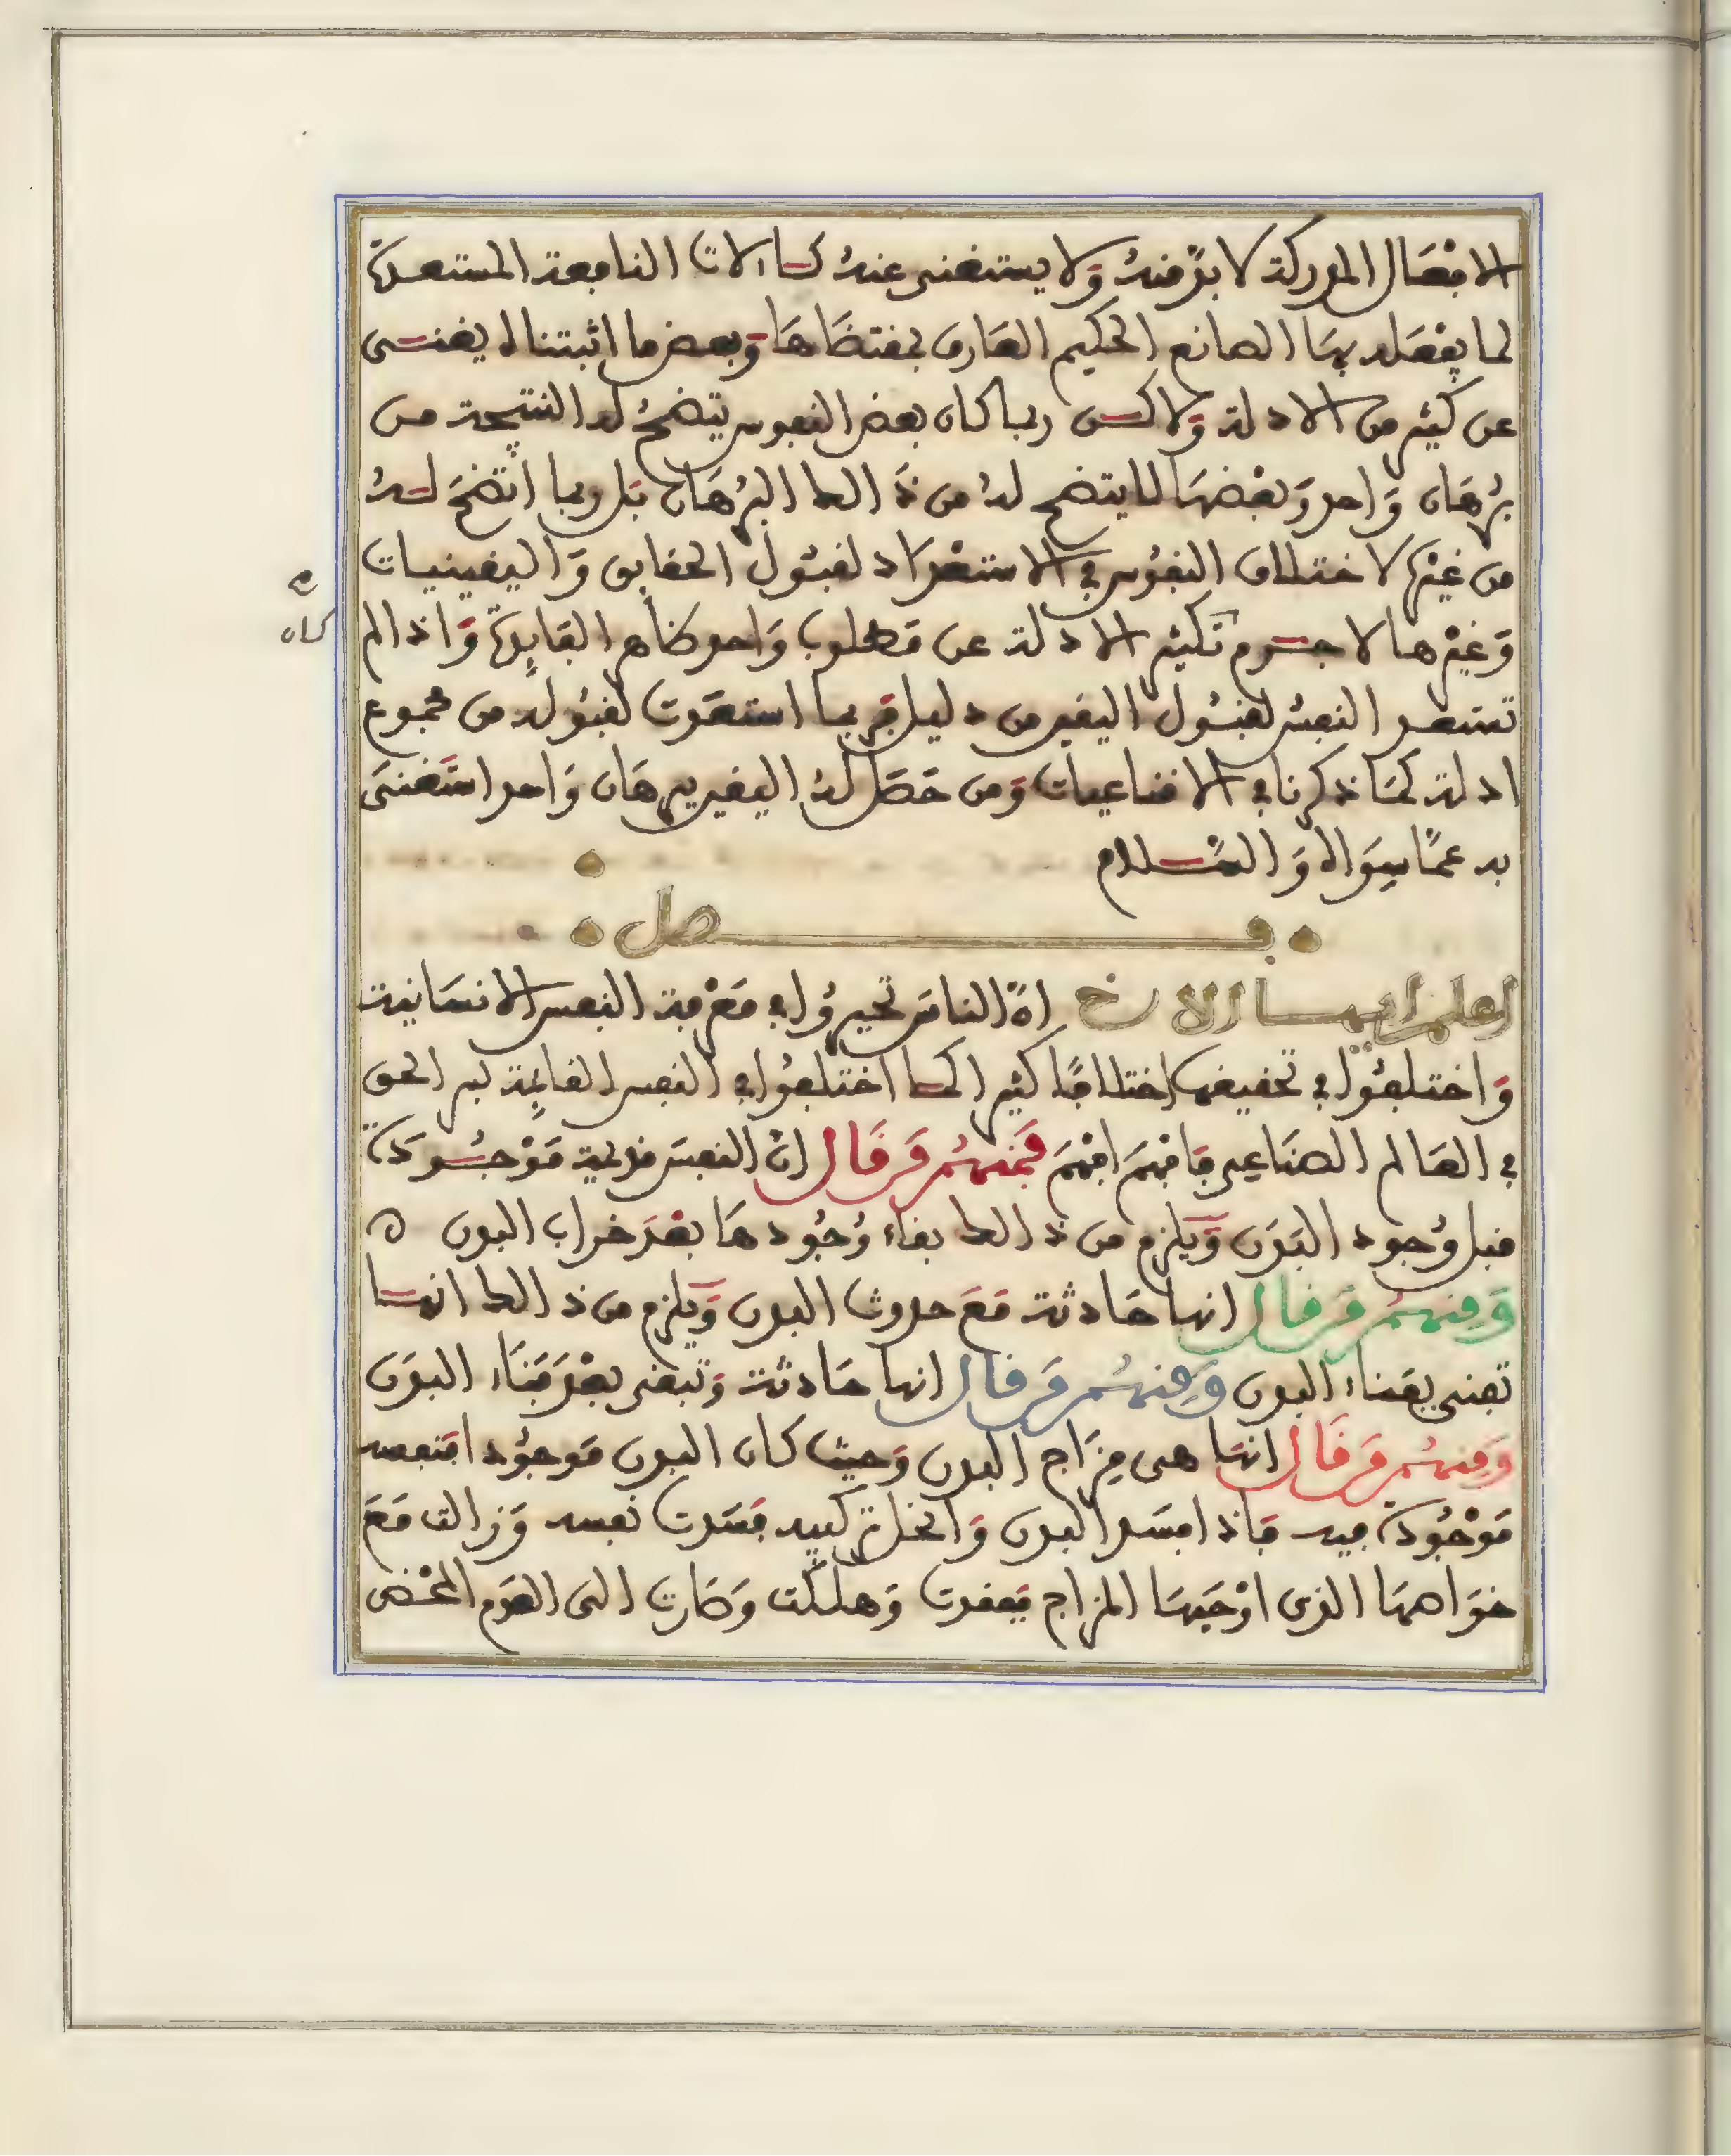 الافعال المدركة لا بدّ منهُ وَلا يستغنى عنهُ كسالات النافعة المستعدة
لما يفْعَله بهَا الصانع الحكيم العَارف بمقتضَاهَا وَبعض ما اثبتناه يغنى
عن كثير من الادلة وَلاكن ربما كان بعض النفوس يتضحُ له النتيجة من
برُهَان وَاحد وَبعْضهَا لا يتضح لهُ من ذَالك البرُهَان بَل ربما اتضَحَ لهُ
من غيْره لاختلاف النفُوس في الاستعْدَاد لقبُول الحقايق وَاليقينيات
وَغيْرهَا لا جرم تكثير الادلة عن مَطلوب وَاحد ظاهر الفَايِدة وَاذا لم
كان
تستعد النفسُ لقبُول اليقين من دليل فربما استعَدت لقبُوله من مجموع
ادلة كمَا ذكرنا في الاقناعيات وَمن حَصَل لهُ اليقين ببرهَان وَاحد استَغنىَ
به عمّا سِوَاه وَالسّلام
فصل
اعلم ايها الاخ انّ الناسَ تحيرُوا في مَعْرفة النفس الانسَانية
وَاختلفُوا في تحقيقها اختلافًا كثيرا كما اختلفُوا في النفس القايِمة لسر الحق
في العَالم الصنَاعي فافهَم افْهَم فَمنهُم مَن قَال انّ النفسَ قديمة مَوْجُودَة
قبل وُجود البَدَن وَيلزم من ذالك بقاء وُجُودهَا بعْدَ خراب البدن ه
وَمِنهُم مَن قال انها حَادثة مَعَ حدوث البدن وَيلزم من ذالك انها
تفنى بفناء البدن وَمِنهُم مَن قال انها حَادثة وَتبقى بعْدَ فَنَاء البدَن
وَمِنهُم مَن قَال انهَا هى مِزَاج البدن وَحيث كان البدن مَوجُودا فنفسه
مَوْجُودَة فيه فاذا فسَد البدن وَانحل تركيبه فسَدت نفسه وَزالت مَعَ
خوَاصهَا الذى اوْجَبهَا المزاج فعدمت وَهلكت وَصَارت الى العَدم المحْض